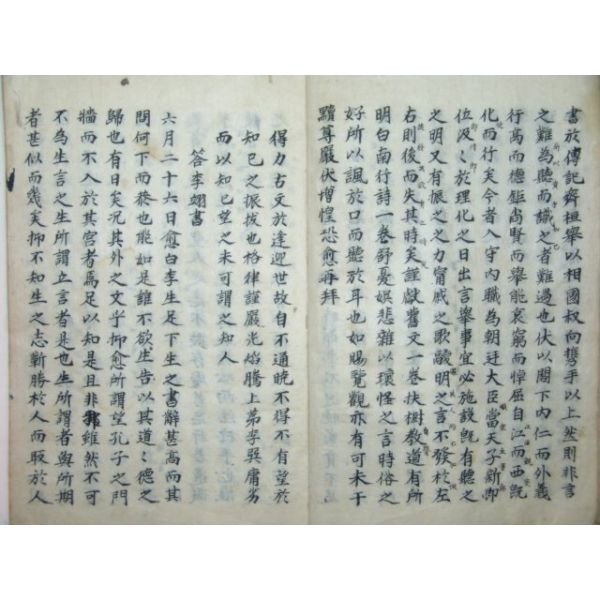 書於傳記齊桓舉以相國叔向攜手以上然則非言
之難為聽而識之者難遇也伏以閣下內仁而外義
行高而德鉅尚賢而舉能哀窮而悼屈自江而西既
化而行矣今者入守內職為朝廷大臣當天子新即
位汲〻於理化之日出言舉事宜必施設既有聽之
之明又有振之之力甯戚之歌鬷明之言不發於左
右則後而失其時矣謹獻舊文一卷扶樹教道有所
明白南行詩一卷舒憂娛悲雜以瓌怪之言時俗之
好所以諷於口而聽於耳也如賜覽觀亦有可采干
黷尊嚴伏增惶恐愈再拜
得力古文於達世故自不通晚不得不有望於
知己之振拔也格律謹嚴光焰騰上弟李巽庸劣
而以知己望之未可謂之知人
答李翊書
六月二十六日愈白李生足下生之書辭甚高而其
問何下而恭也能如是誰不欲生告以其道〻德之
歸也有日矣況其外之文乎抑愈所謂望孔子之門
墻而不入於其宮者焉足以知是且非耶雖然不可
不為生言之生所謂立言者是也生所謂者與所期
者甚似而幾矣抑不知生之志蘄勝於人而取於人